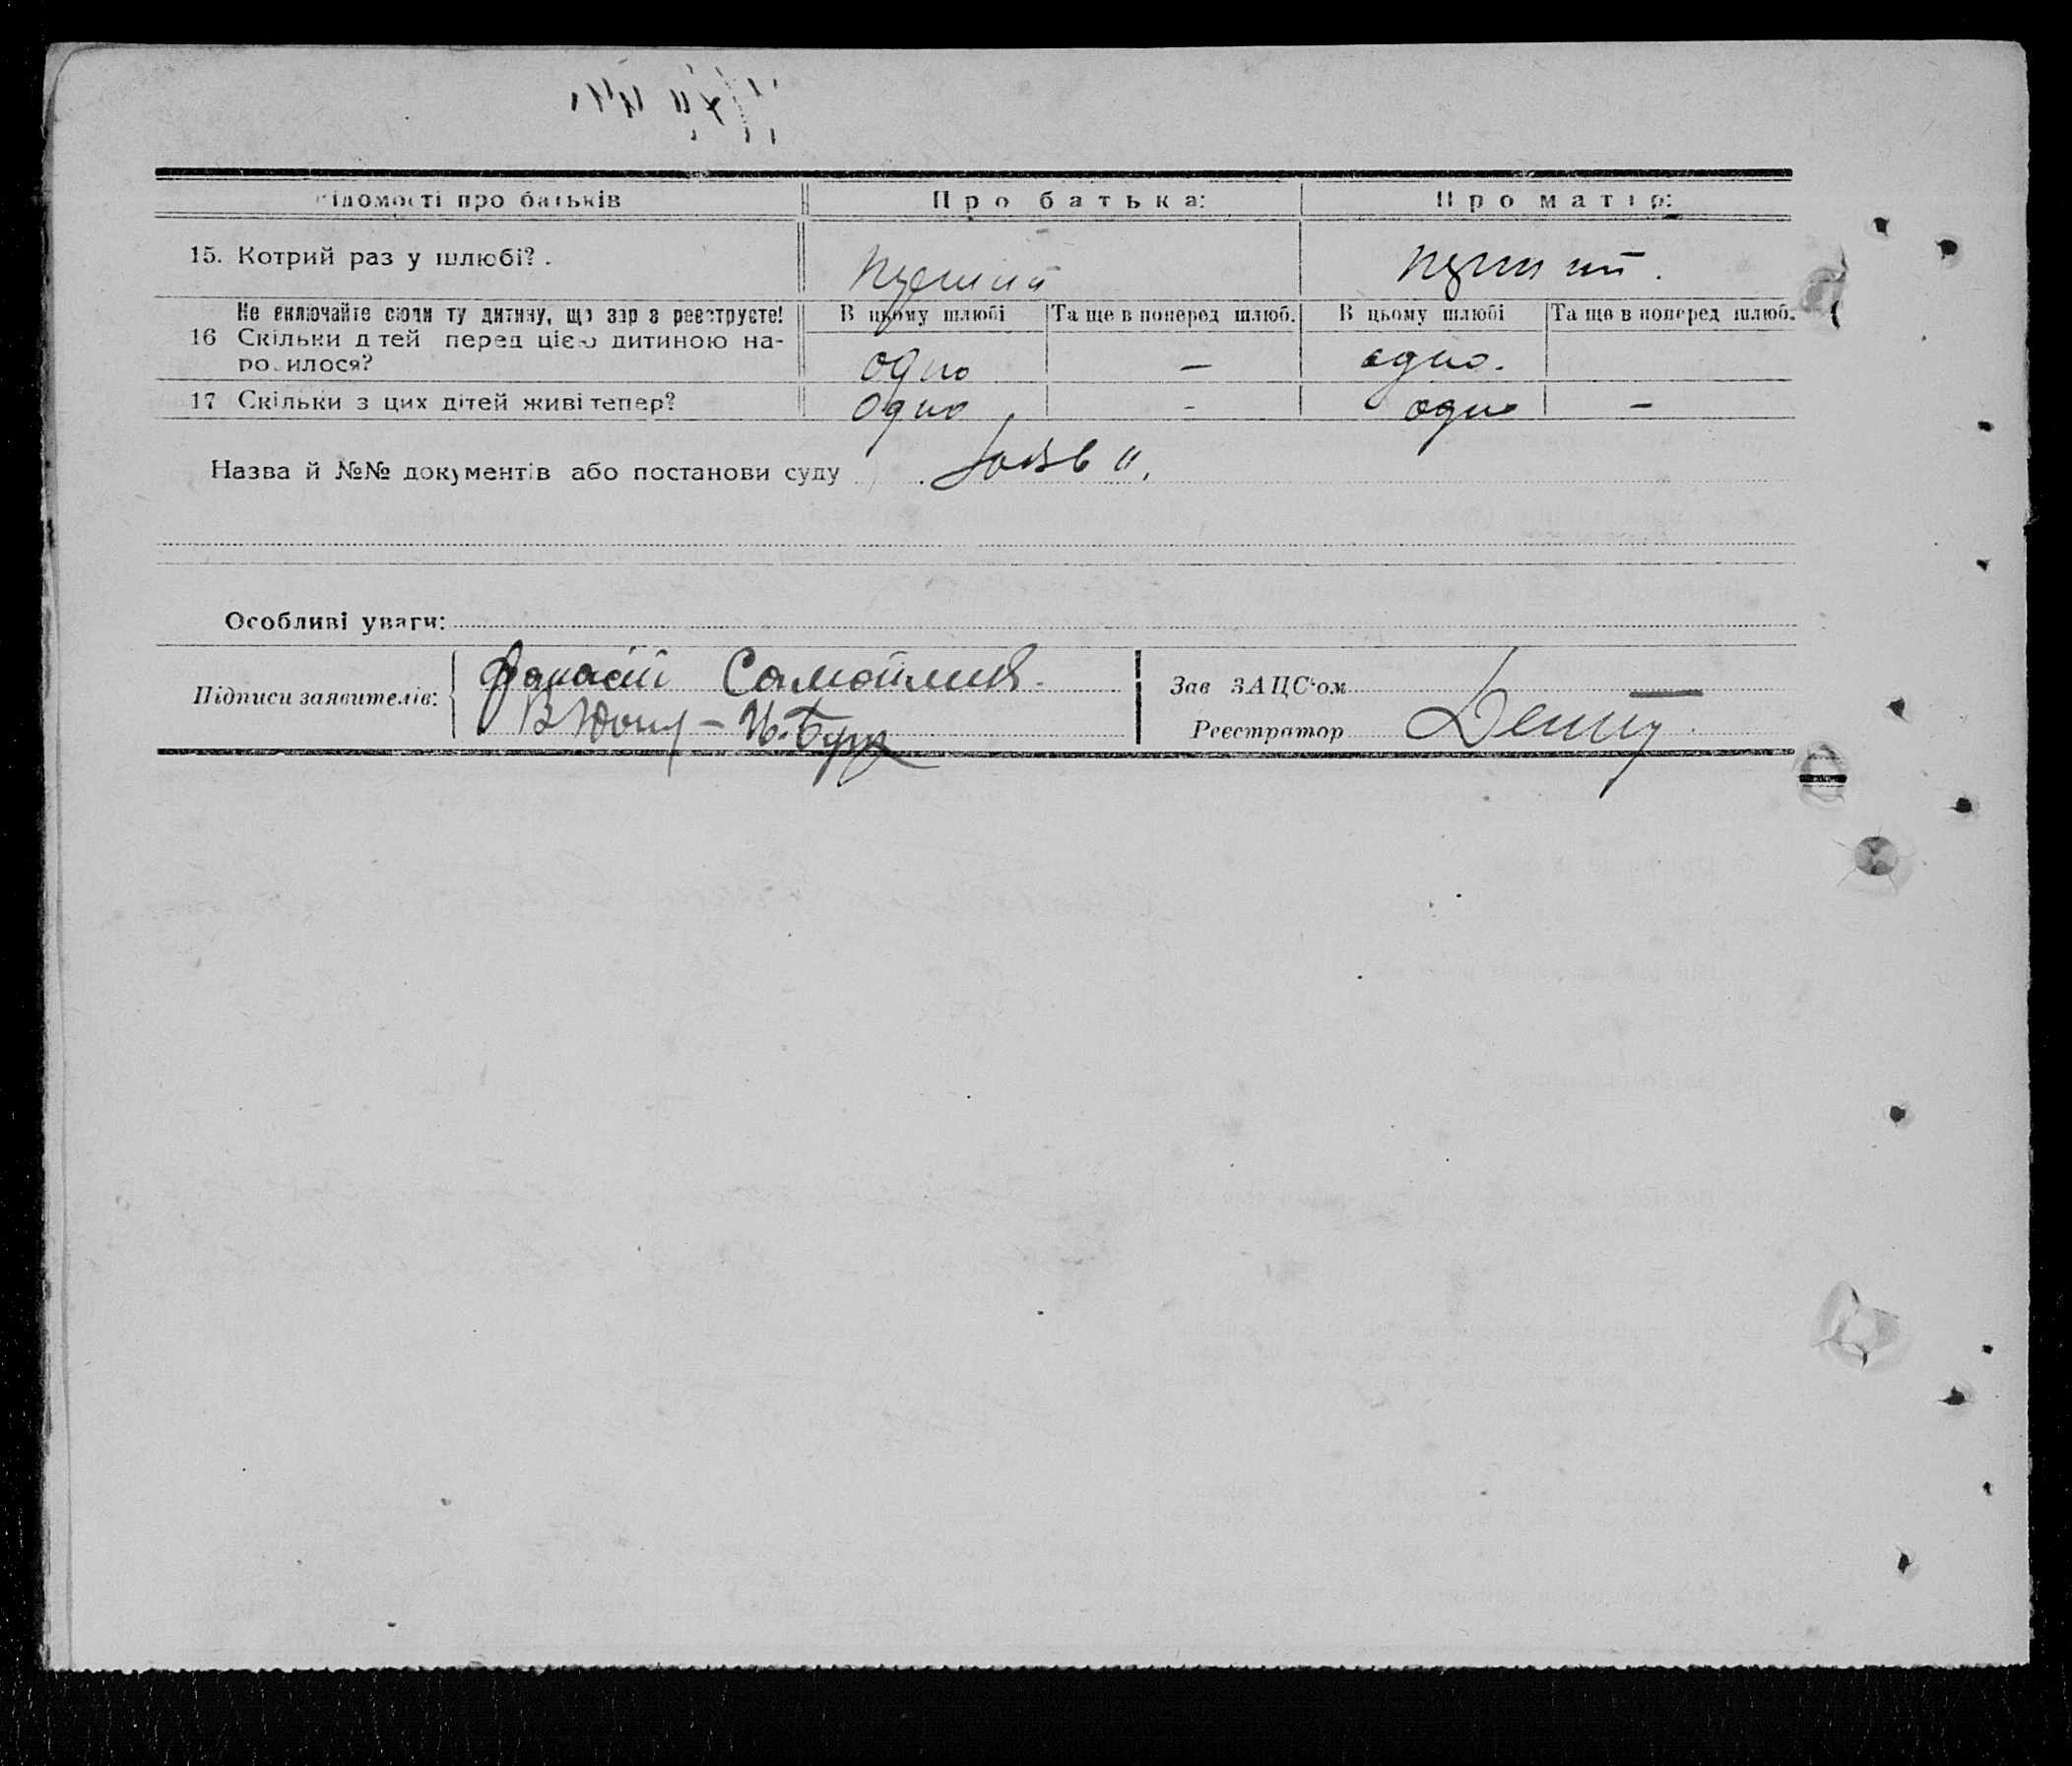 ідомості про батьків Про батька: Про матір:
15. Котрий раз у шлюбі?. перший перший.
Не включайте сюди ту дитину, що зар з реєструєте! В цьому шлюбі Та ще в поперед шлюб. В цьому шлюбі Та ще в поперед шлюб.
16 Скільки д тей перед цією дитиною на-
ро илося? одно — одно.
17 Скільки з цих дітей живі тепер? одно - одно —
Назва й №№ документів або постанови суду
Особливі уваги:
Підписи заявителів: Панасій Самойлик.
Зав ЗАЦС'ом —
Реєстратор